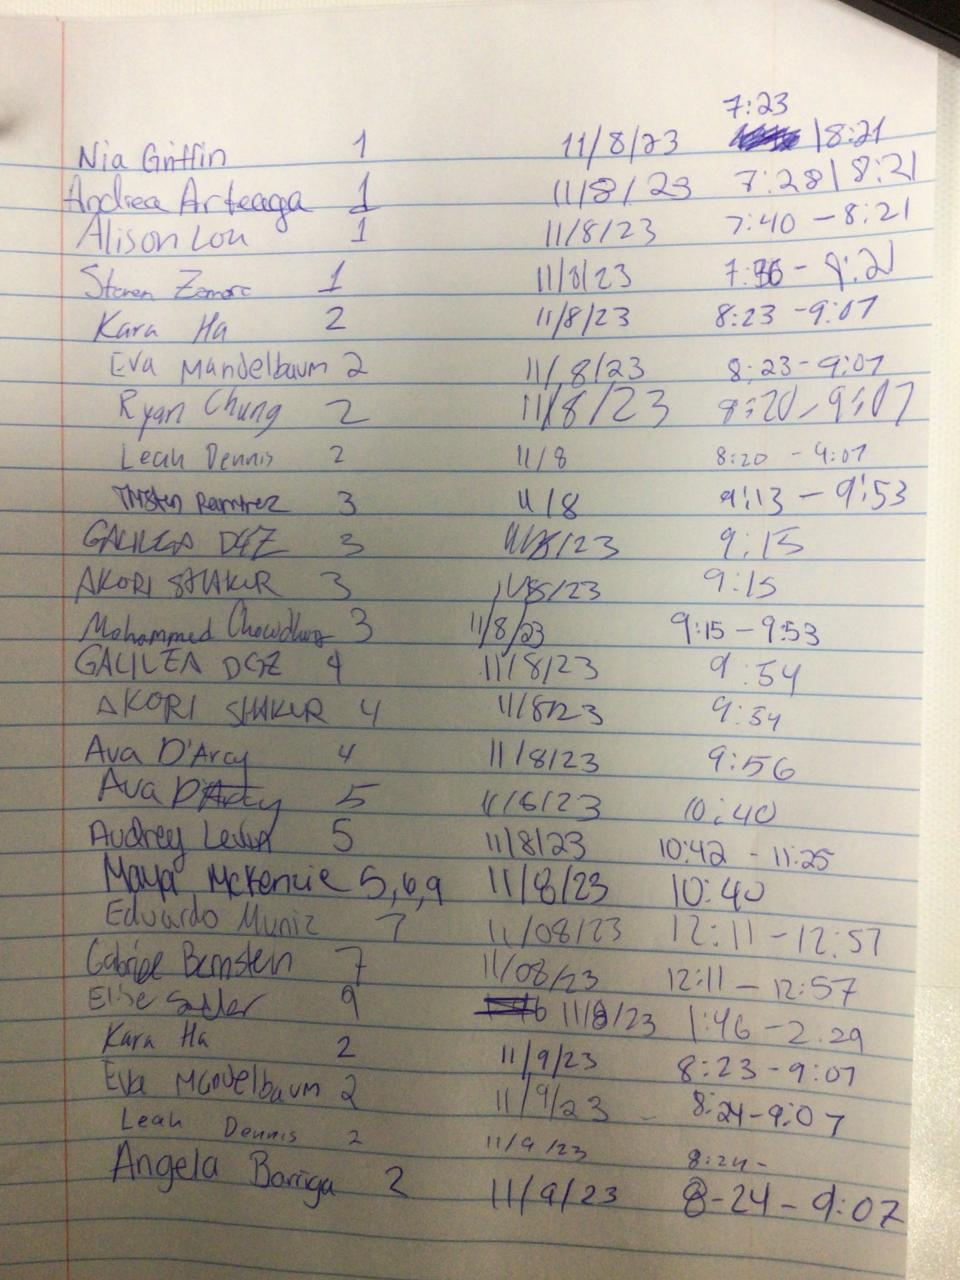 7:23
Nia Griffin 1 11/8/23 | 8:21
Andrea Arteaga 1 11/8/23 7:28 | 8:21
Alison Lou 1 11/8/23 7:40 - 8:21
Steven 1 11/8/23 7:36 - 8:21
Kara Ha 2 11/8/23 8:23 - 9:07
Eva Mandelbaum 2 11/8/23 8:23 - 9:07
Ryan Chung 2 11/8/23 8:20 - 9:07
Leah Dennis 2 11/8 8:20 - 9:07
Tristen Ramirez 3 11/8 9:13 - 9:53
GALILEA DGZ 3 11/8/23 9:15
AKORI SHAKUR 3 11/8/23 9:15
Mohammed Chowdhury 3 11/8/23 9:15 - 9:53
GALILEA DGZ 4 11/8/23 9:54
AKORI SHAKUR 4 11/8/23 9:54
Ava D'Arcy 4 11/8/23 9:56
Ava D'Arcy 5 11/8/23 10:40
Audrey 5 11/8/23 10:42 - 11:25
Maya McKenzie 5,6,9 11/8/23 10:40
Eduardo Muniz 7 11/08/23 12:11 - 12:57
Gabriel Bernstein 7 11/08/23 12:11 - 12:57
Elise 9 11/8/23 1:46 - 2:29
Kara Ha 2 11/9/23 8:23 - 9:07
Eva Mandelbaum 2 11/9/23 8:24 - 9:07
Leah Dennis 2 11/9/23 8:24 -
Angela Barriga 2 11/9/23 8-24 - 9:07